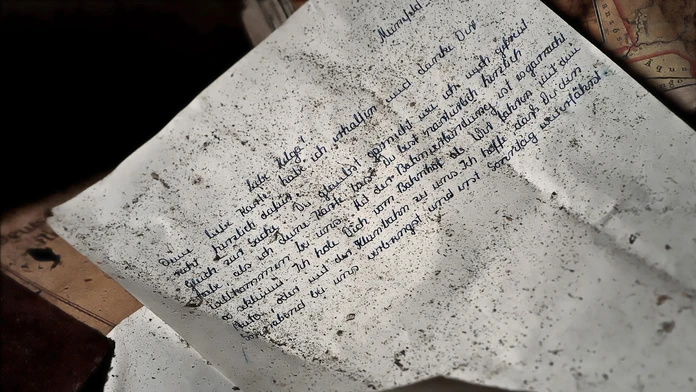 Mumpfeld
Liebe Helga!
Deine liebe Karte habe ich erhalten und danke Dir
recht herzlich dafür. Du glaubst gar nicht wie ich mich gefreut
habe als ich deine Karte las. Du bist natürlich herzlich
Willkommen bei uns. Mit der Bahnverbindung ist es gar nicht
so schlimm. Ich hole Dich vom Bahnhof ab. Wir fahren mit dem
Auto oder mit der Kleinbahn zu uns. Ich hoffe daß Du den
Sonnabend bei uns verbringst und erst Sonntag weiterfährst.